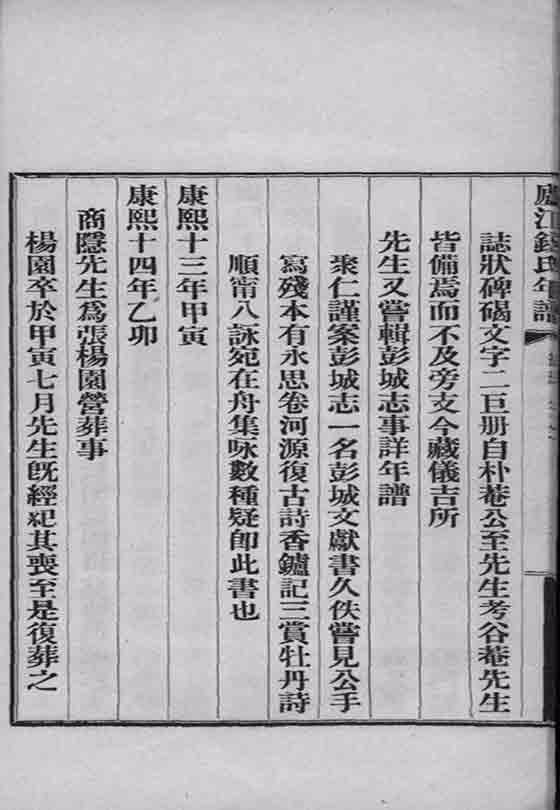 廬江錢氏年譜
誌狀碑碣文字二巨册自朴菴公至先生考谷菴先生
皆備焉而不及旁支今藏儀吉所
先生又嘗輯彭城志事詳年譜
聚仁謹案彭城志一名彭城文獻書久佚嘗見公手
寫殘本有永思卷河源復古詩香鑪記三賞牡丹詩
順甯八詠宛在舟集咏數種疑卽此書也
康熙十三年甲寅
康熙十四年乙卯
商隱先生爲張楊園營葬事
楊園卒於甲寅七月先生旣經紀其喪至是復葬之